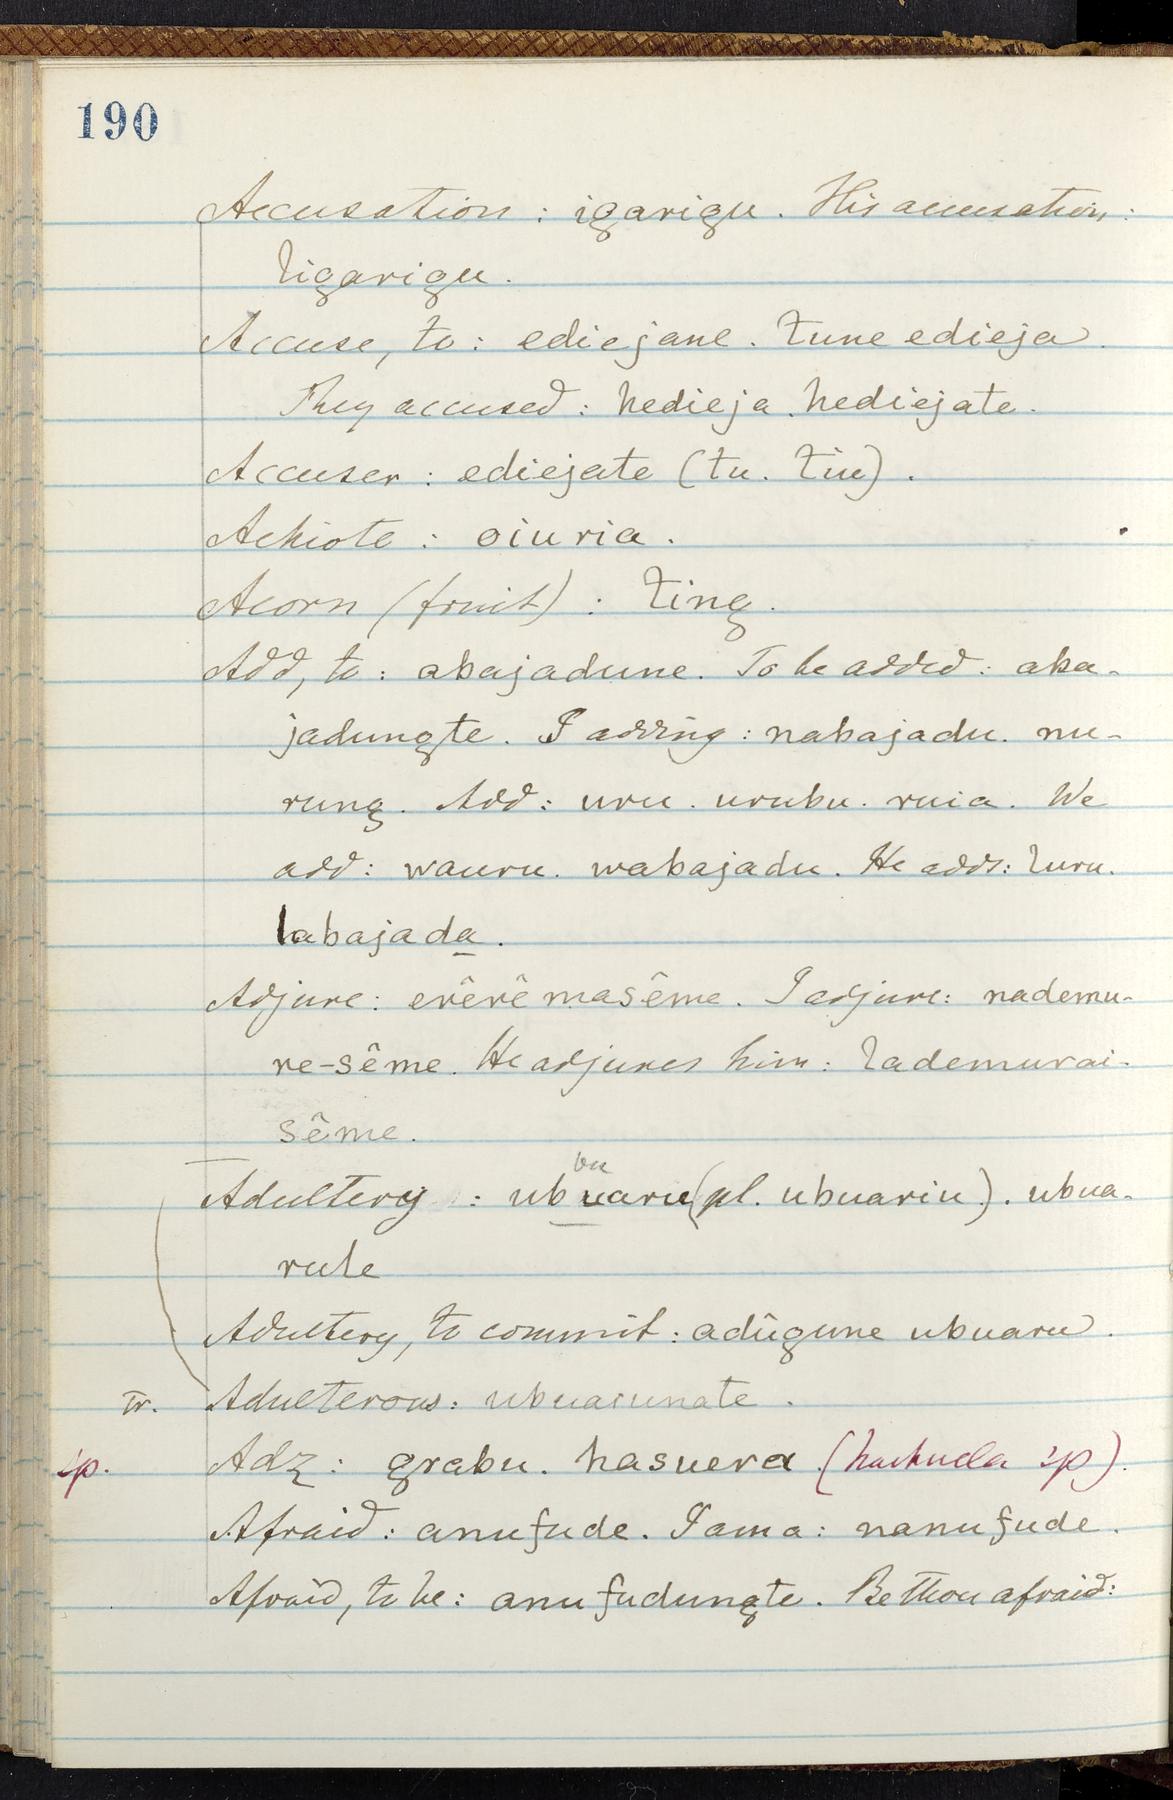 190
Accusation : igarigu. His accusation :
ligarigu.
Accuse, to : ediejane. tune edieja.
They accused : hedieja. hediejate.
Accuser : ediejate (tu. tiu).
Achiote : oiuria.
Acorn (fruit) : ting.
Add, to : abajadune. To be added : aba-
jadungte. I adding : nabajadu. nu-
rung. Add : uru. urubu. ruia. We
add : wauru. wabajadu. He adds : luru.
labajada.
Adjure : erêrê masême. I adjure : nademu-
re-sême. He adjures him : lademurai-
sême.
bu
Adultery : ubuaru (pl. ubuariu). ubua-
rule
Adultery, to commit : adügune ubuaru.
Tr. Adulterous : ubuarunate.
Sp. Adz : grabu. hasuera (hachuela Sp).
Afraid : anufude. I am a : nanufude.
Afraid, to be : anufudungte. Be thou afraid :